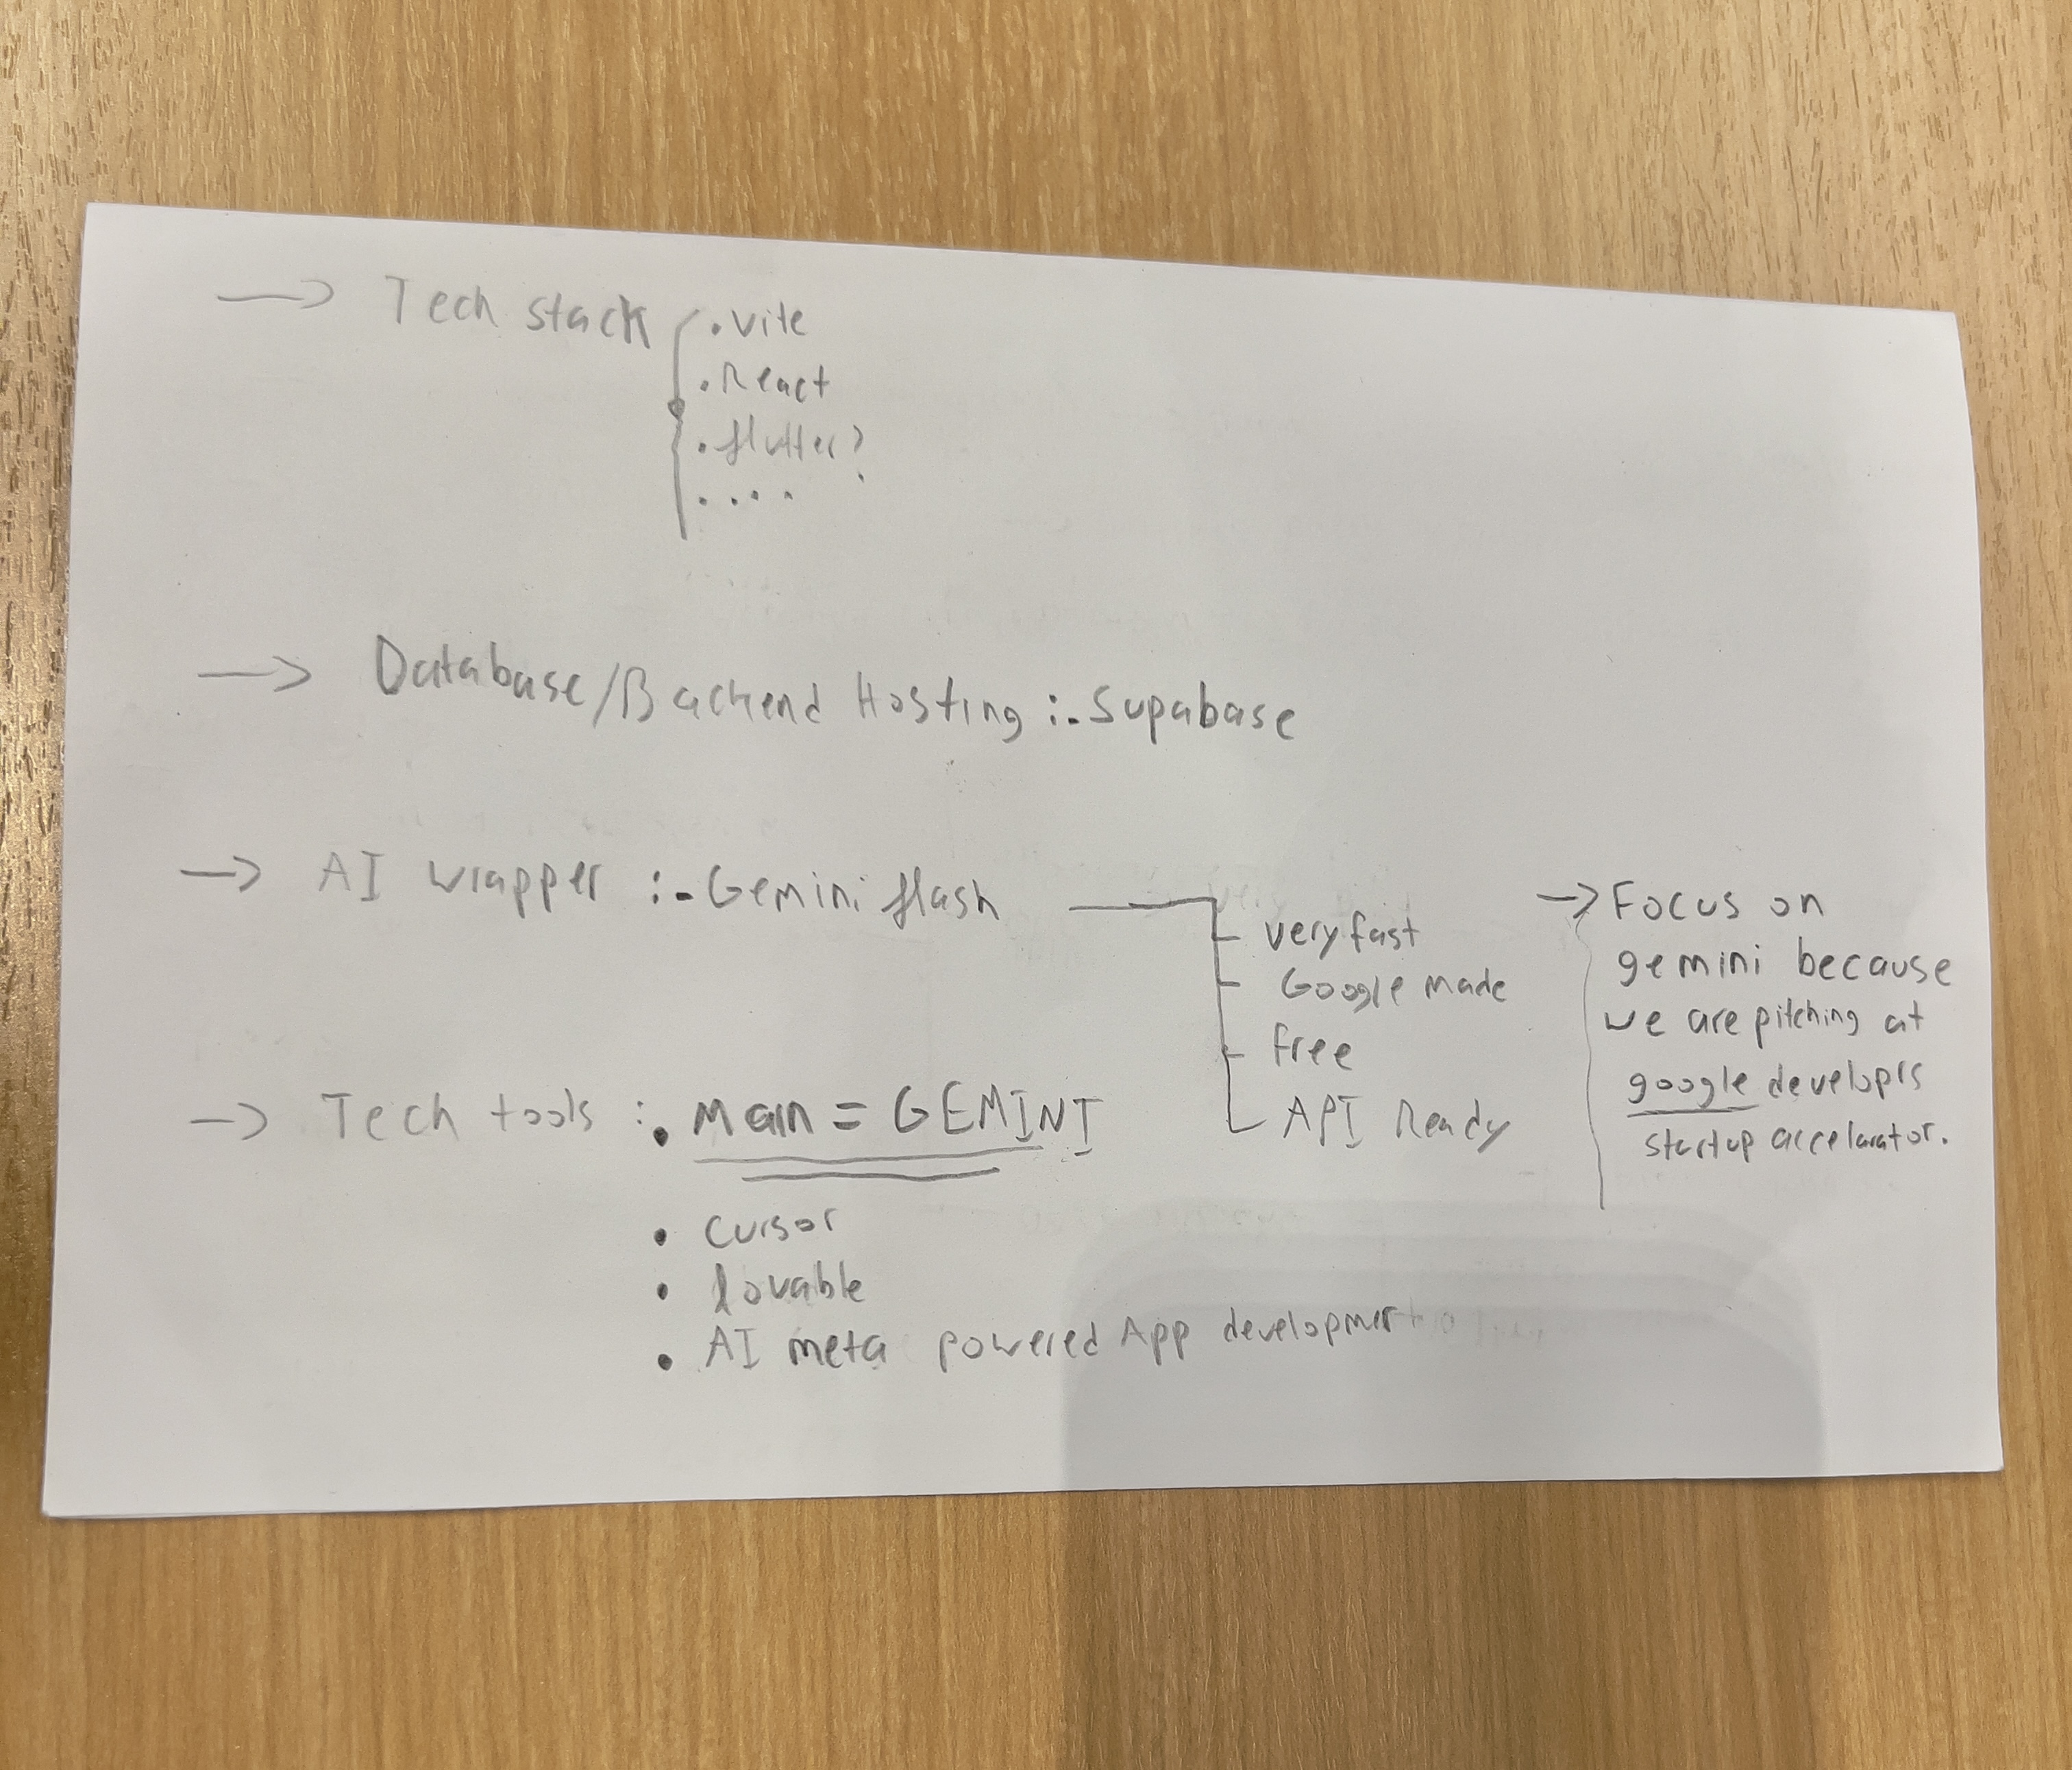 → Tech stack
• vite
• React
• flutter?
• • • •
→ Database/Backend Hosting :- Supabase
→ AI wrapper :- Gemini flash
very fast
Google made
free
API Ready
→ Focus on
gemini because
we are pitching at
google developrs
startup accelarator.
→ Tech tools :• main = GEMINI
• cursor
• lovable
• AI meta powered App development